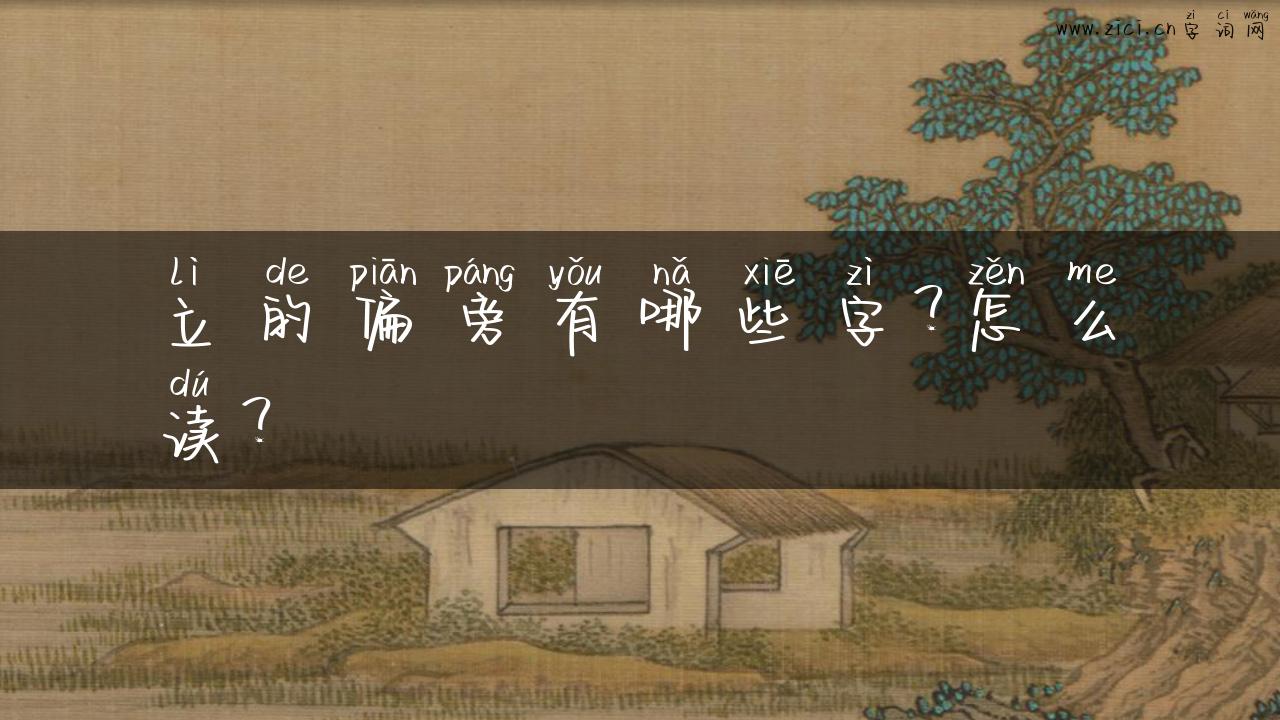 zì cí wǎng
www.zici.cn 字 词 网
lì de piān páng yǒu nǎ xiē zì zěn me
立 的 偏 旁 有 哪 些 字 ? 怎 么
dú
读 ?